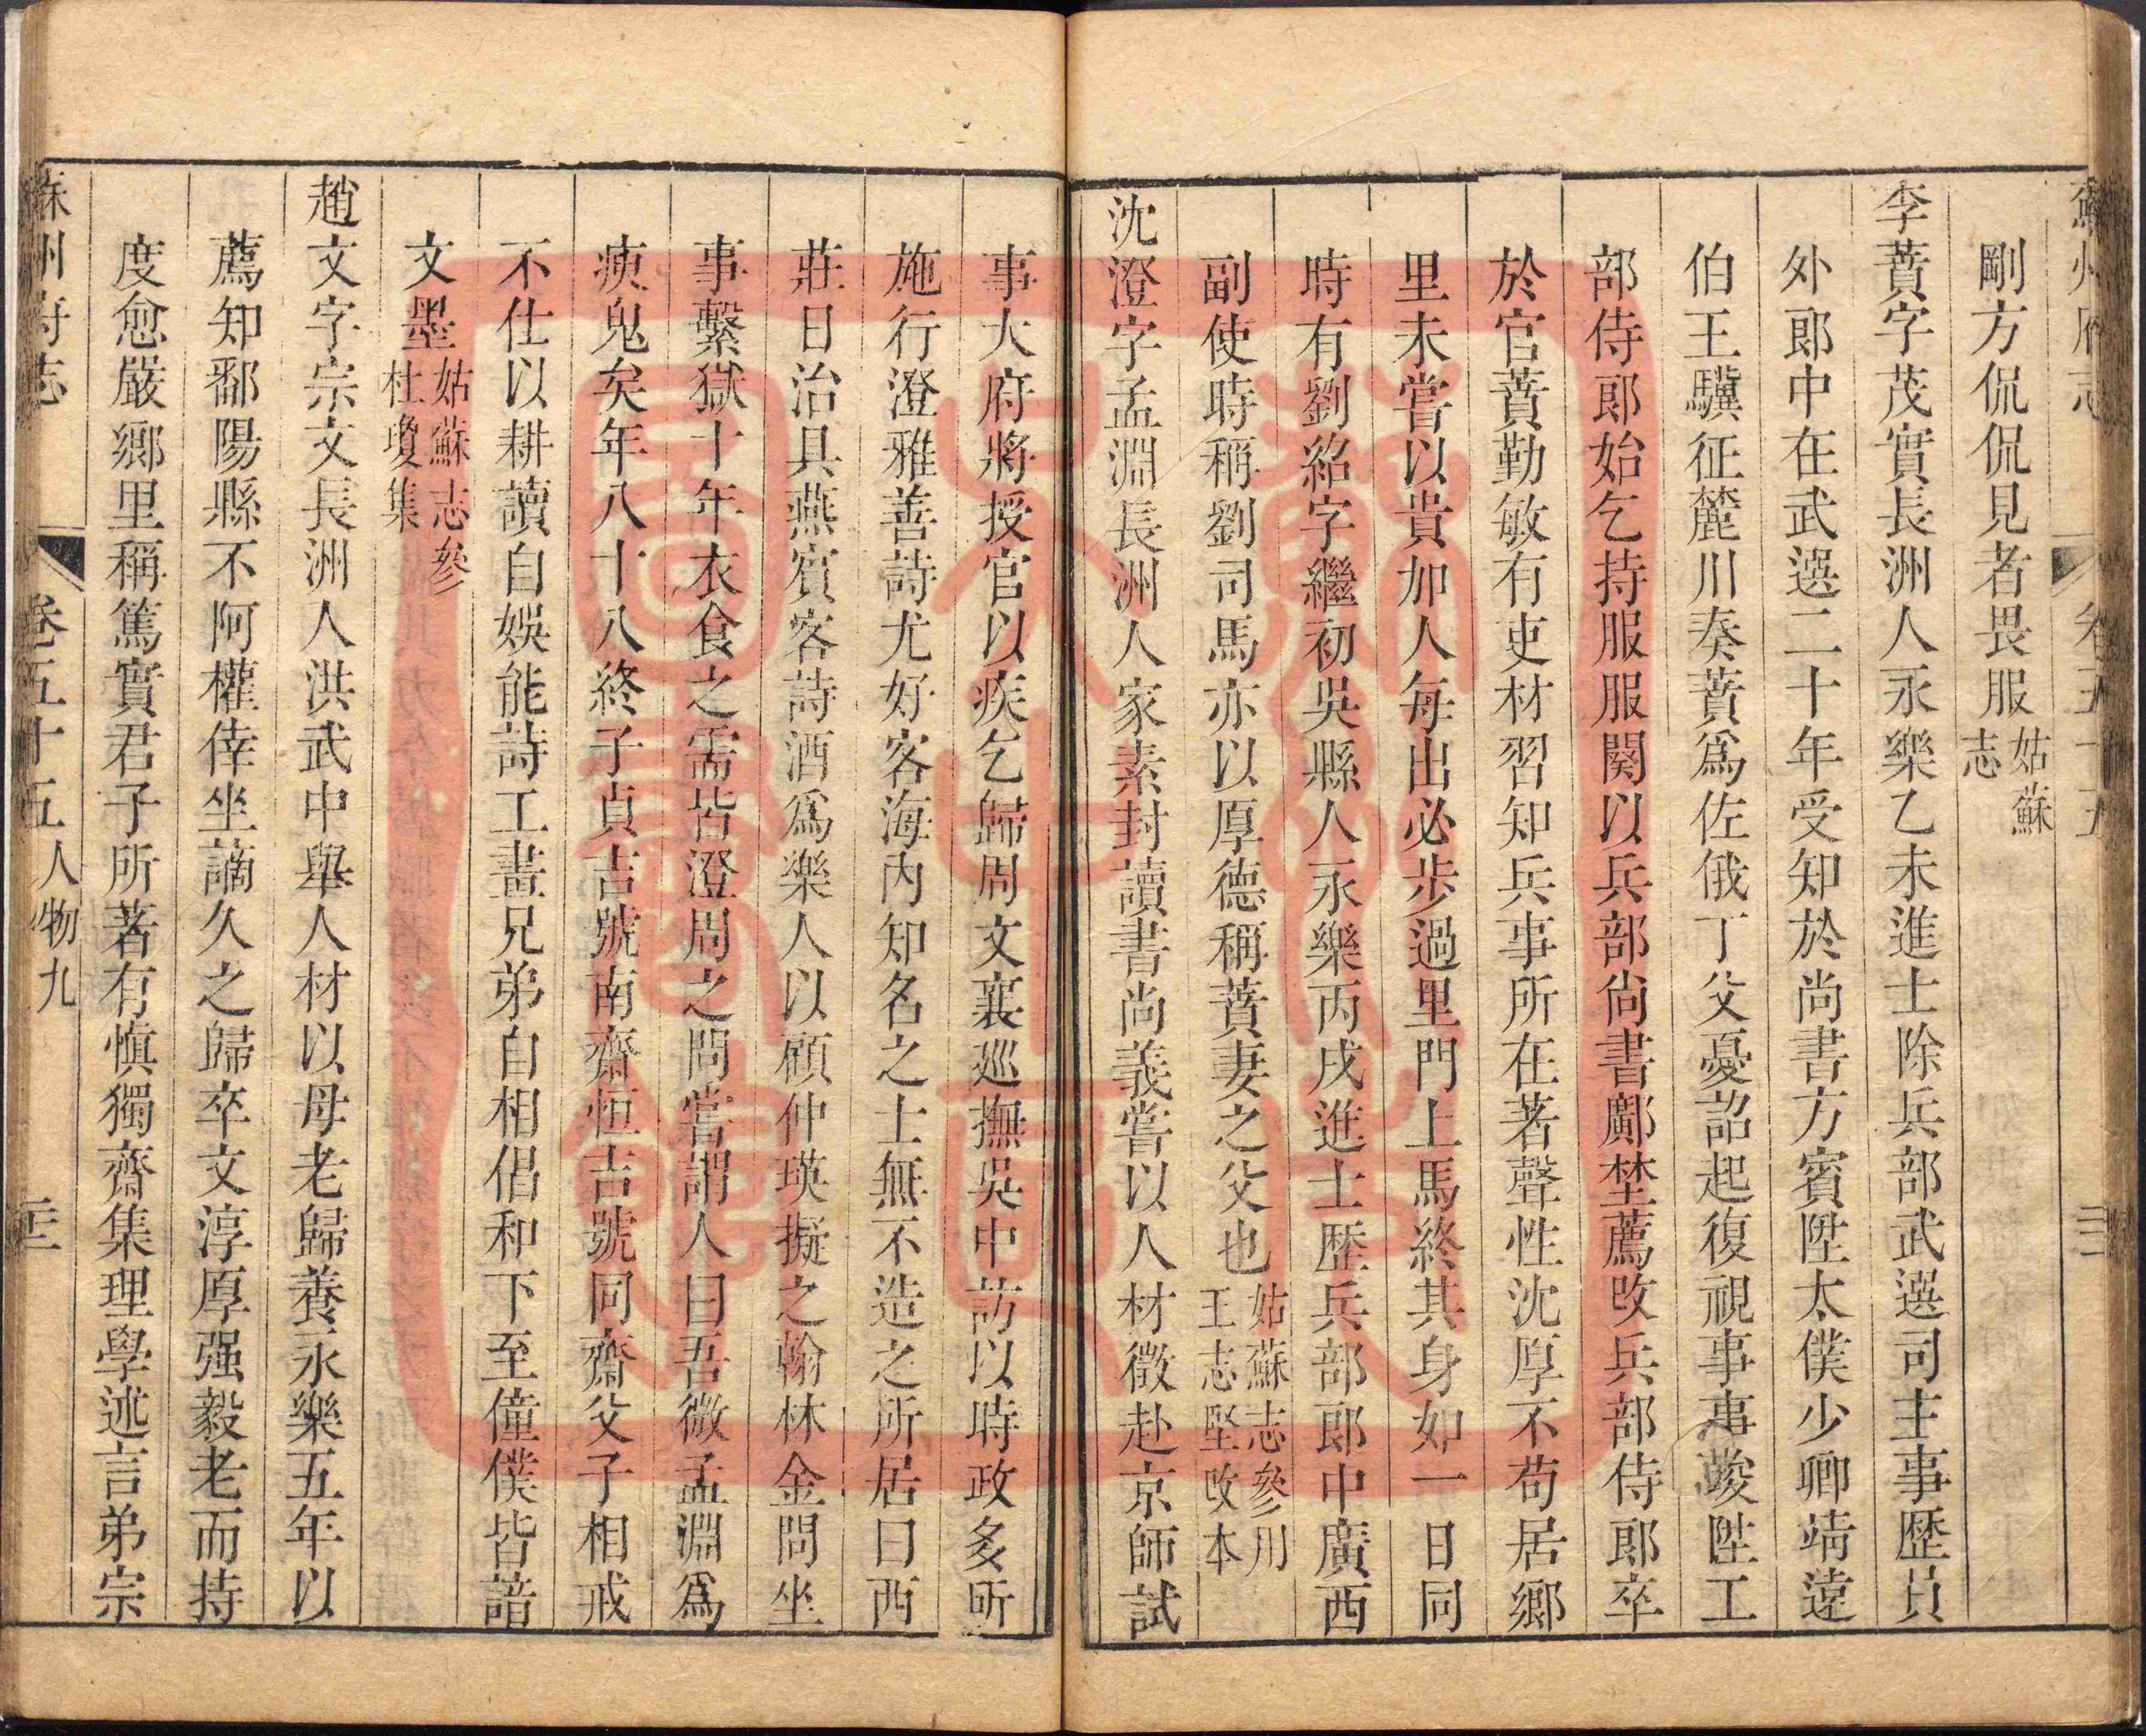 蘇州府志
卷五十五
三一
剛方侃侃見者畏服姑蘇
志
李蕡字茂實長洲人永樂乙未進士除兵部武選司主事歷員
外郎中在武選二十年受知於尚書方賓陞太僕少卿靖遠
伯王驥征麓川奏蕡爲佐俄丁父憂詔起復視事事竣陞工
部侍郎始乞持服服闋以兵部尚書鄺埜薦改兵部侍郎卒
於官蕡勤敏有吏材習知兵事所在著聲性沈厚不苟居鄉
里未嘗以貴加人每出必步過里門上馬終其身如一日同
時有劉紹字繼初吳縣人永樂丙戌進士歷兵部郎中廣西
副使時稱劉司馬亦以厚德稱蕡妻之父也姑蘇志參用
王志堅改本
沈澄字孟淵長洲人家素封讀書尚義嘗以人材徵赴京師試
事大府將授官以疾乞歸周文襄巡撫吳中訪以時政多所
施行澄雅善詩尤好客海內知名之士無不造之所居曰西
莊日治具燕賓客詩酒爲樂人以顧仲瑛擬之翰林金問坐
事繫獄十年衣食之需皆澄周之問嘗謂人曰吾微孟淵爲
瘐鬼矣年八十八終子貞吉號南齋恒吉號同齋父子相戒
不仕以耕讀自娛能詩工畫兄弟自相倡和下至僮僕皆諳
文墨姑蘇志參
杜瓊集
趙文字宗文長洲人洪武中舉人材以母老歸養永樂五年以
薦知鄱陽縣不阿權倖坐謫久之歸卒文淳厚强毅老而持
度愈嚴鄉里稱篤實君子所著有愼獨齋集理學述言弟宗
蘇州府志
卷五十五人物九
三二